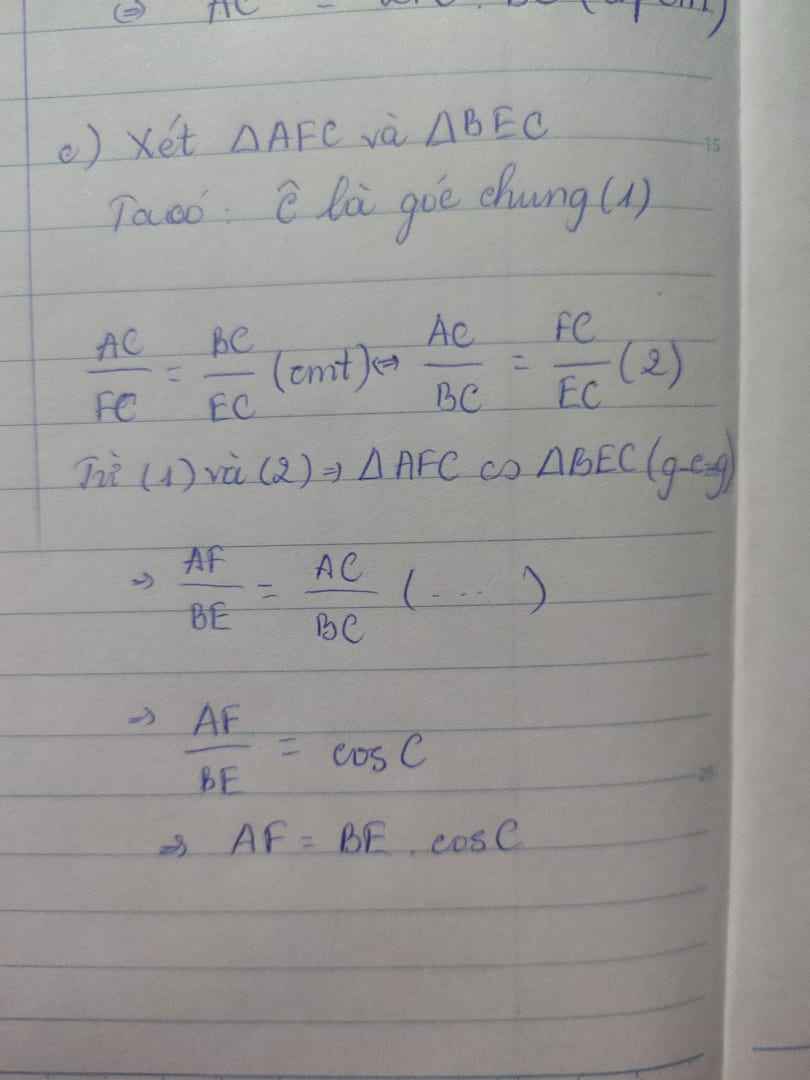 ⇔ AC
c) Xét ΔAFC và ΔBEC
Ta có: Ĉ là góc chung (1)
AC/FC = BC/EC (cmt) ⇔ AC/BC = FC/EC (2)
Từ (1) và (2) ⇒ ΔAFC ∽ ΔBEC (g-c-g)
⇒ AF/BE = AC/BC (....)
⇒ AF/BE = cos C
⇒ AF = BE . cos C
15